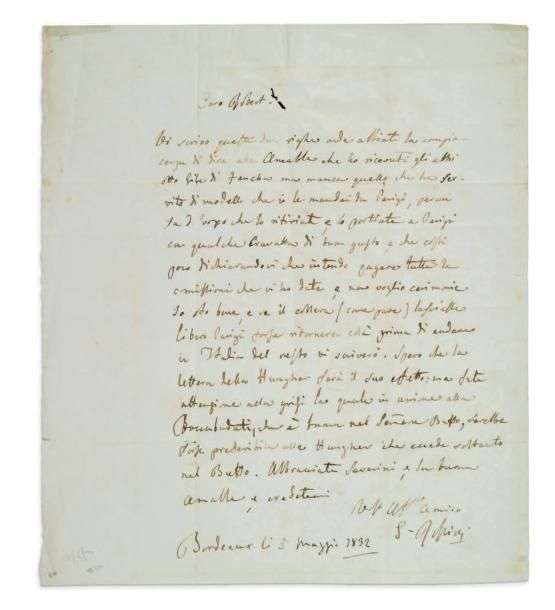 Caro Robert.
Vi scrivo queste due righe onde abbiate la compia-
cenza di dire alla Amalle che ho ricevuti gli altri
otto Gilè di ma manca quello che ha ser-
vito di modello che io le mandai da Parigi,
d'uopo che lo ritiriate, e lo portiate a Parigi
con qualche Cravatta di buon gusto, e che costi
poco dichiarandovi che intendo pagare tutte le
comissioni che vi ho date, e non voglio cerimonie
Io sto bene, e se il collera (come pare) lasciasse
libero Parigi forse ritornerei costì prima di andare
in Italia del resto vi scriverò. Spero che la
lettera della Hungher farà il suo effetto; ma fate
attenzione alla Grisi la quale in unione alla
Boccabadati, che è buona nel Serio e Buffo, sarebbe
forse preferibile alla Hungher che eccede soltanto
nel Buffo. Abbracciate Severini, e la buona
Amalle e credetemi
Vost Aff. Amico
G. Rossini
Bordeaux li 5 Maggio 1832